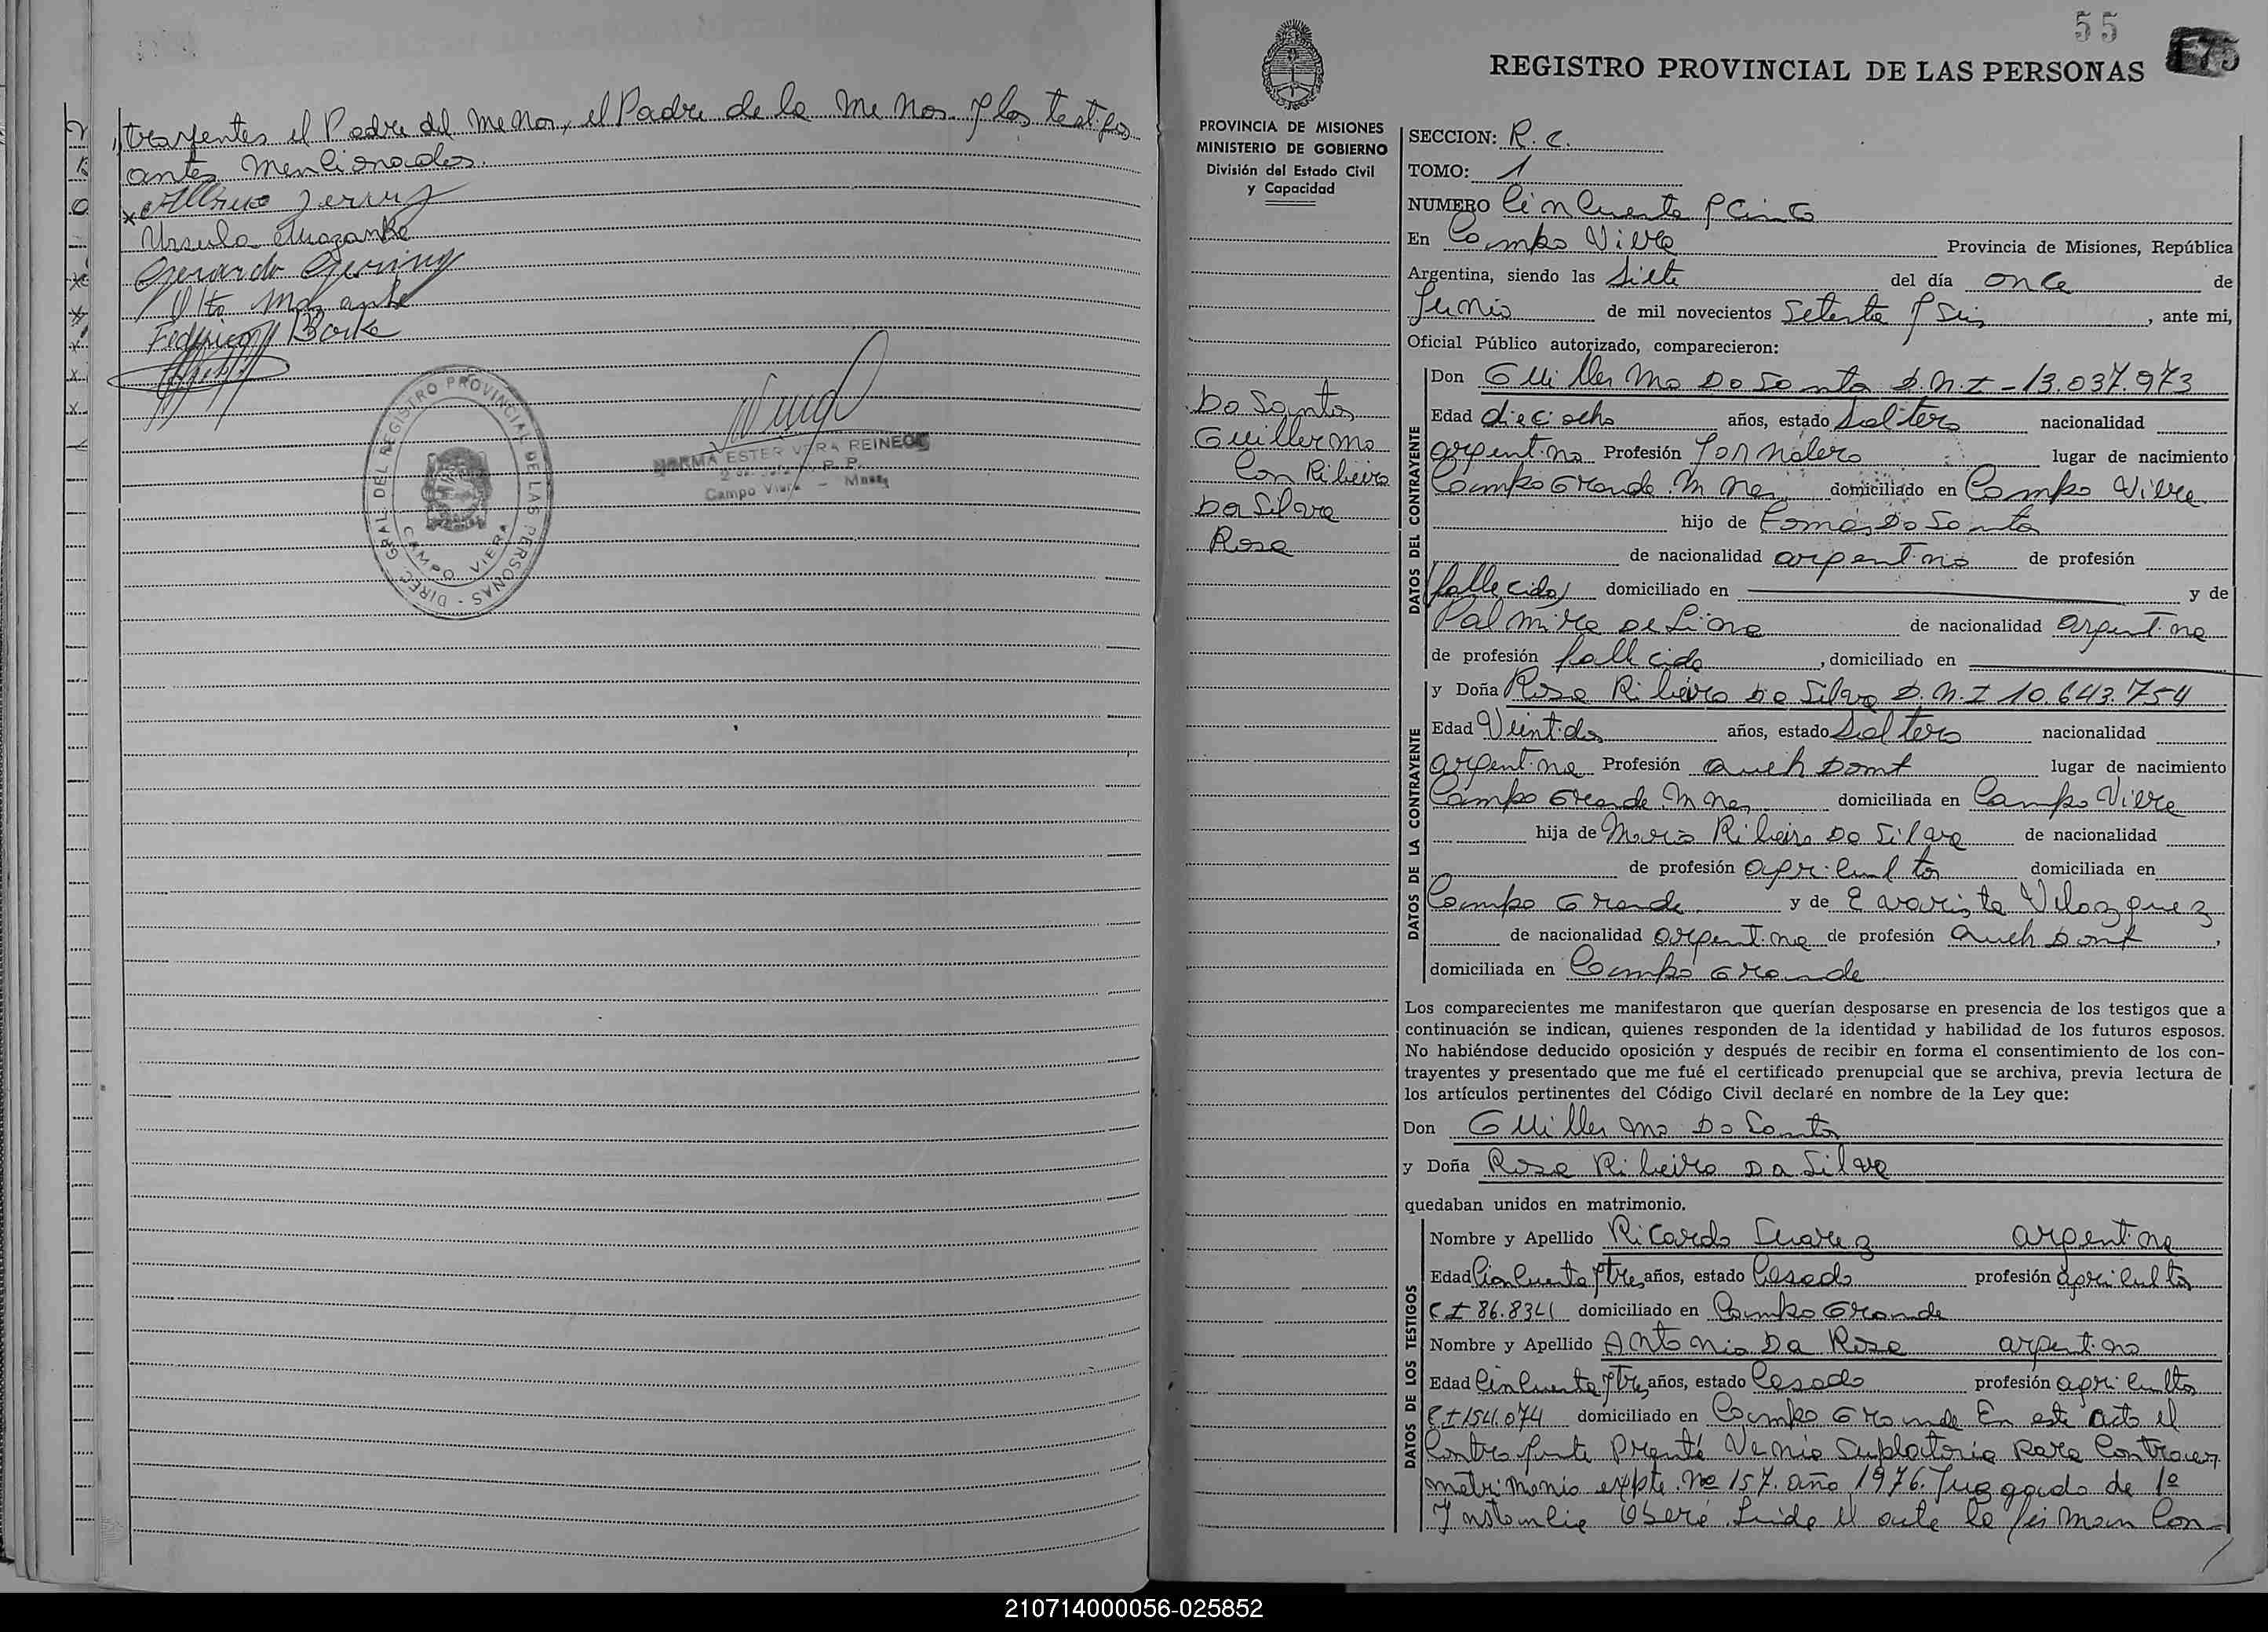 trayentes el Padre del menor, el Padre de la menor y los testigos
antes mencionados.
Ursula
Gerardo Gering
Federico Borke
DIREC. GRAL. DEL REGISTRO PROVINCIAL DE LAS PERSONAS -
CAMPO VIERA
NORMA ESTER VERA REINECK
Campo Viera - Mnes.
55
175
REGISTRO PROVINCIAL DE LAS PERSONAS
PROVINCIA DE MISIONES
MINISTERIO DE GOBIERNO
División del Estado Civil
y Capacidad
Do Santos
Guillermo
Con Ribeiro
Da Silva
Rosa
SECCION: R.C.
TOMO: 1
NUMERO Cincuenta y Cinco
En Campo Viera Provincia de Misiones, República
Argentina, siendo las Siete del día once de
Junio de mil novecientos Setenta y Seis, ante mi,
Oficial Público autorizado, comparecieron:
DATOS DEL CONTRAYENTE
Don Guillermo Do Santo D.N.I - 13.037.973
Edad dieciocho años, estado Soltero nacionalidad
argentino Profesión Jornalero lugar de nacimiento
Campo Grande. Mnes. domiciliado en Campo Viera
hijo de Tomas Do Santo
de nacionalidad argentino de profesión
(fallecido) domiciliado en y de
Palmira De Liora de nacionalidad argentina
de profesión fallecida, domiciliado en
DATOS DE LA CONTRAYENTE
y Doña Rosa Ribeiro Da Silva D.N.I 10.643.754
Edad Veintidos años, estado Soltera nacionalidad
argentina Profesión Queh Domt lugar de nacimiento
Campo Grande Mnes, domiciliada en Campo Viera
hija de Mario Ribeiro Da Silva de nacionalidad
de profesión agricultor domiciliada en
Campo Grande y de Evarista Velazquez
de nacionalidad argentina de profesión Queh Domt,
domiciliada en Campo Grande
Los comparecientes me manifestaron que querían desposarse en presencia de los testigos que a
continuación se indican, quienes responden de la identidad y habilidad de los futuros esposos.
No habiéndose deducido oposición y después de recibir en forma el consentimiento de los con-
trayentes y presentado que me fué el certificado prenupcial que se archiva, previa lectura de
los artículos pertinentes del Código Civil declaré en nombre de la Ley que:
Don Guillermo Do Santos
y Doña Rosa Ribeiro Da Silva
quedaban unidos en matrimonio.
DATOS DE LOS TESTIGOS
Nombre y Apellido Ricardo Suarez argentino
Edad Cincuenta y tres años, estado Casado profesión agricultor
C I 86.834 domiciliado en Campo Grande
Nombre y Apellido Antonio Da Rosa argentino
Edad Cincuenta y tres años, estado Casado profesión agricultor
C I 154.074 domiciliado en Campo Grande En este acto el
Contrayente Presentó Venia Supletoria Para Contraer
matrimonio expte. Nº 157. año 1976. Juzgado de 1º
Instancia Oberá. Leida el acta la firman Con-
210714000056-025852